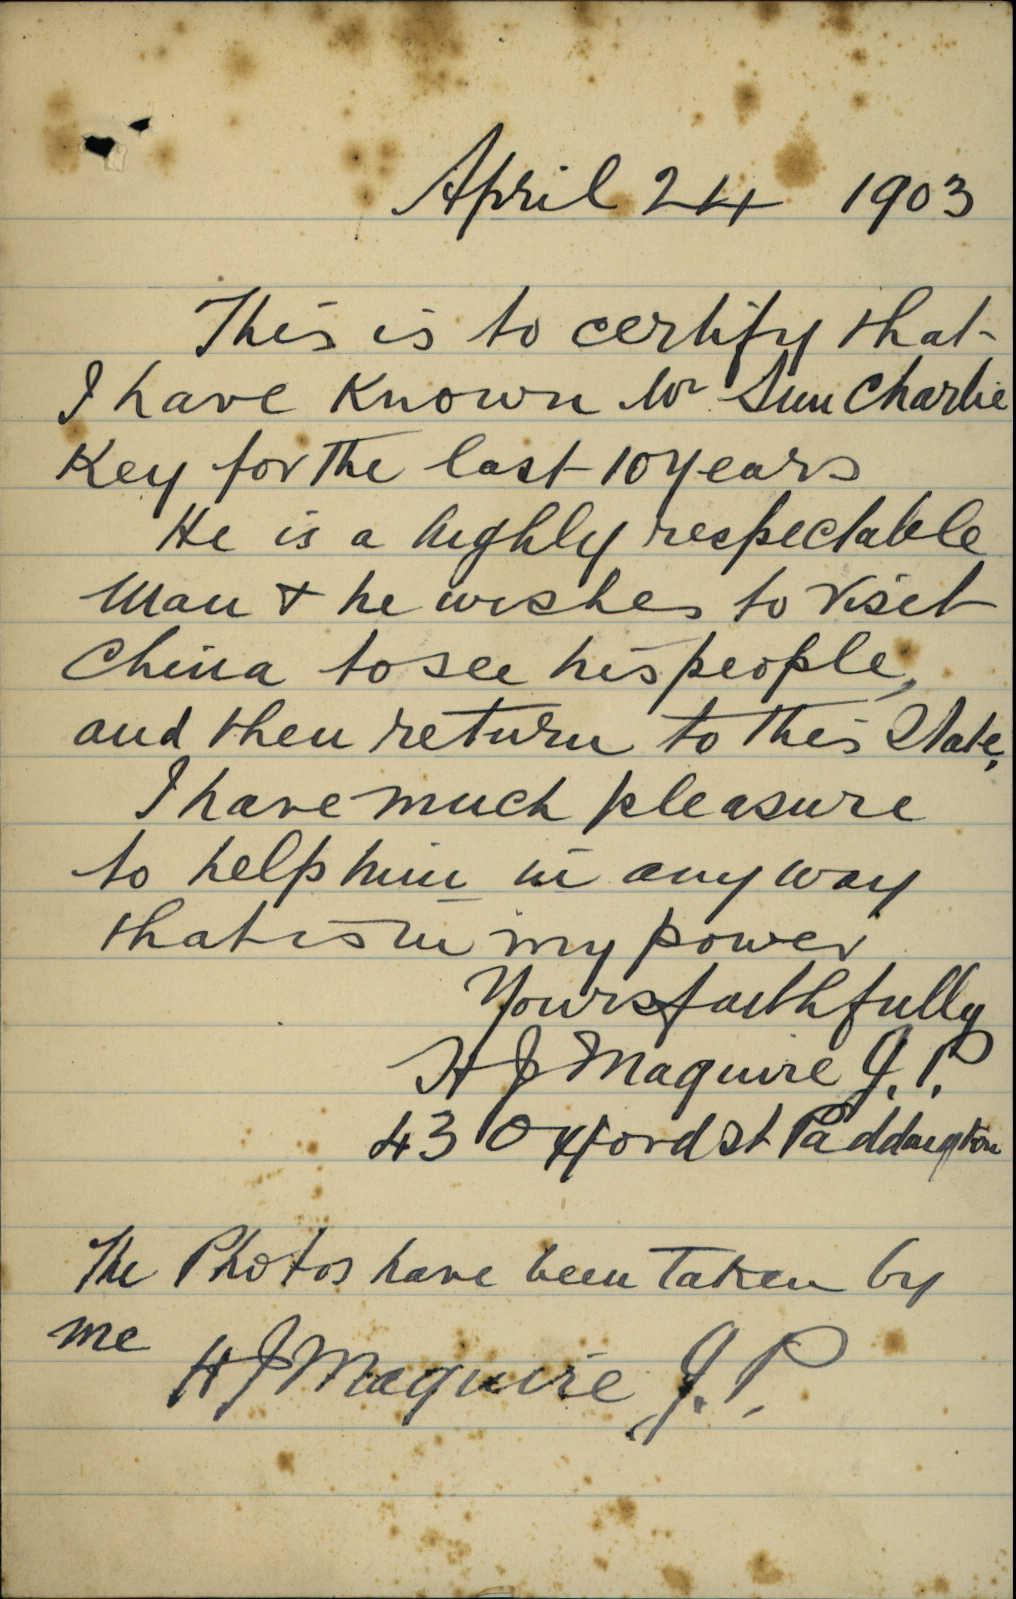 April 24 1903
This is to certify that
I have known Mr Sun Charlie
Key for the last 10 years
He is a highly respectable
Man & he wishes to visit
China to see his people,
and then return to this State.
I have much pleasure
to help him in any way
that is in my power
Yours faithfully
H J Maguire J.P.
43 Oxford St Paddington
The Photos have been taken by
me
H J Maguire J.P.